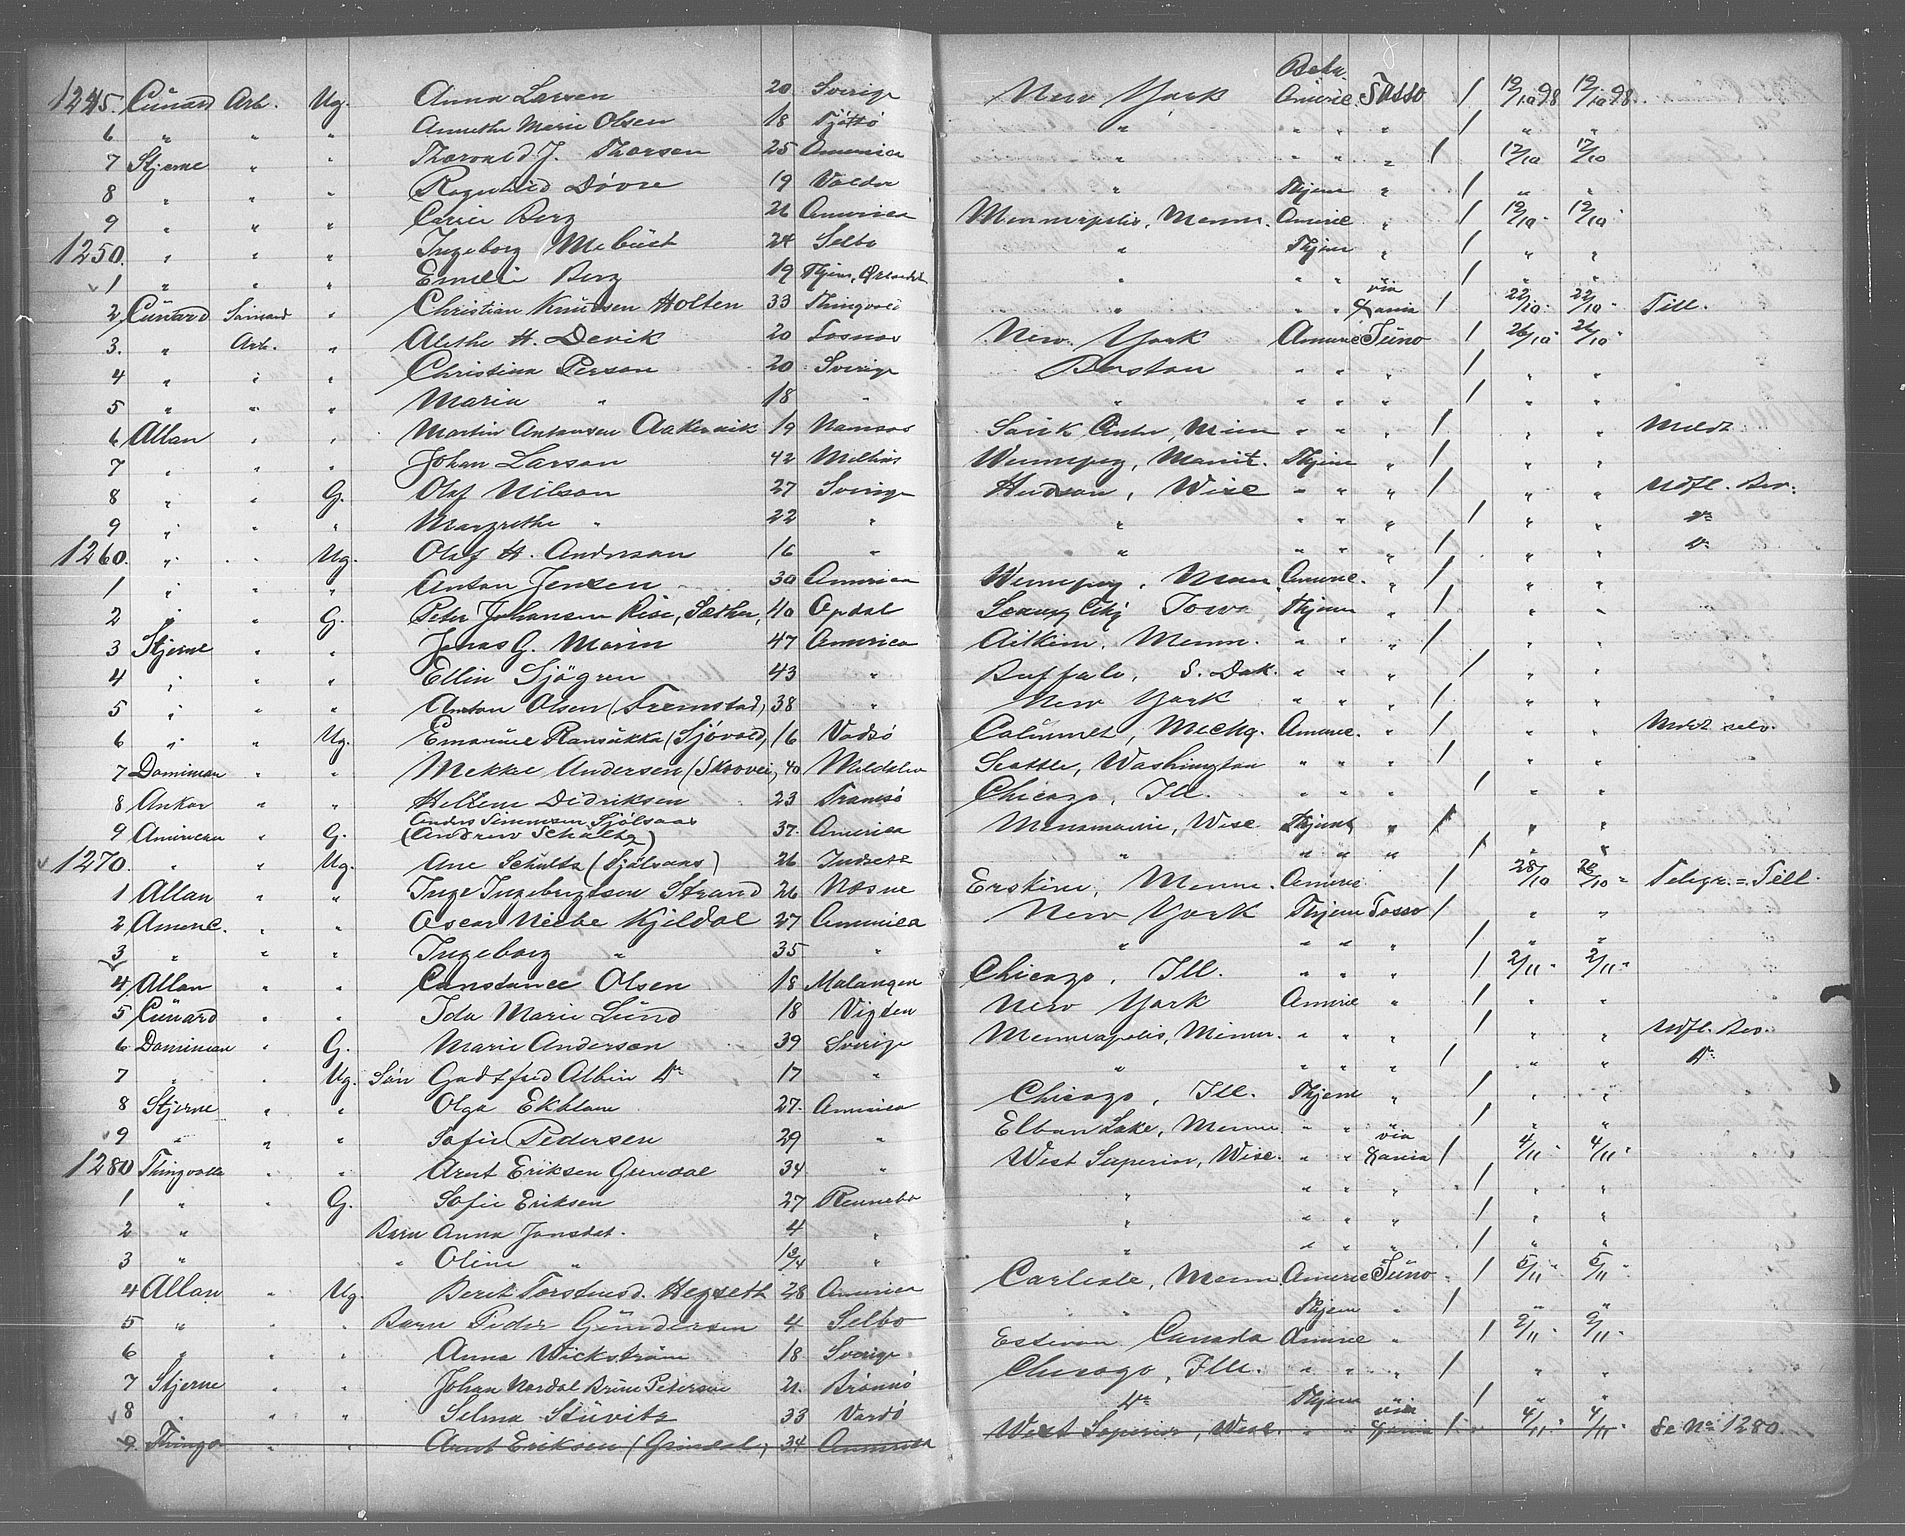 1245. Cunard Arb. Ug. Anna Larsen 20 Sverige New York Beta. Americ. Tasso / 12/10 98 12/10 98.
6 " " " Annethe Marie Olsen 18 Tjøttø " " " " / " "
7 Stjerne " " Thorvald J. Thorsen 25 America " " " " / 12/10 12/10
8 " " " Ragnhild Dovre 19 " Thjem " / " "
9 " " " Carrie Berg 26 America Minneapolis, Minn. Americ " / 12/10 12/10
1250. " " " Ingeborg Mebust 24 Selbo " Thjem " / " "
1 " " " Emelie Berg 19 Thjem, " " " " / " "
2 Cunard Sømand " Christian Knudsen Holten 33 " " " via Xania / 22/10 22/10 Till.
3. " Arb. " Alethe H. Devik 20 Fosnæs New York Americ Juno / 26/10 26/10
4 " " " Christina Person 20 Sverige Boston " " " / " "
5 " " " Maria " 18 " " " " " / " "
6 Allan " " Martin Antonsen Aakervik 19 Namsos Sauk Centre, Minn " " " / " " Meldt
7 " " " Johan Larson 42 Melhus Winnepeg, Manit. Thjem " / " "
8 " " G. Olaf Nilson 27 Sverige Hudson, Wisc " " " / " " Udfl. Bev.
9 " " " Margrethe " 22 " " " " " / " " do
1260. " " Ug. Olaf H. Anderson 16 " " " " " / " " do
1 " " " Anton Jensen 30 America Winnepeg, Man Americ. " / " "
2 " " G. Peter Johansen Rise, Sæther, 40 Opdal City Iowa Thjem " / " "
3 Stjerne " " Jonas G. Morin 47 America Aitkin, Minn. " " " / " "
4 " " " Ellin Sjögren 43 " Buffalo, S. Dak. " " " / " "
5 " " " Anton Olsen (Fremstad) 38 " New York " " " / " "
6 " " Ug. Emanuel Ransukka (Sjövold) 16 Vadsø Calumet, Michg. Americ. " / " " Meldt selv.
7 Dominion " " Mekkel Andersen (Skovvei) 40 Maalselv Seattle, Washington " " " / " "
8 Anker " " Hellene Didriksen 23 Tromsø Chicago, Ill. " " " / " "
9 American " G. Anders Simonsen Sjølsaas (Andrew Schultz) 37. America Menomonie, Wisc Thjem " / " "
1270. " " Ug. Ane Schultz (Sjølsaas) 26 Indset " " " " / " "
1 Allan " " Inge Ingebrigtsen Strand 26 Næsne Erskine, Minn. Americ / 28/10 28/10 Telegr. = Till.
2 Americ. " " Oscar Kjeldal 27 America New York Thjem Tasso / " "
3 " " " Ingeborg " 35 " " " " " / " "
4 Allan " " Constance Olsen 18 Malangen Chicago, Ill. " " " / 2/11 2/11
5 Cunard " " Ida Marie Lund 18 Vigten New York Americ " / " "
6 Dominion " G. Marie Anderson 39 Sverige Minneapolis, Minn. " " " / " " Udfl. Bev.
7 " " Ug. Søn Godtfred Albin do 17 " " " " " / " " do
8 Stjerne " " Olga Ekblom 27. America Chicago, Ill. Thjem " / " "
9 " " " Sofie Pedersen 29 " Elbow Lake, Minn " " " / " "
1280 Thingvalla " " Arnt Eriksen Grindal 34 " West Superior, Wisc. " " via Xania / 4/11 4/11
1 " " G. Sofie Eriksen 27 Rennebo " " " " " / " "
2 " Barn Anna Jonsdat. 4 " " " " " / " "
3 " " Oline " 13/4 " " " " " / " "
4 Allan " Ug. Beret Torstensd. Hegseth 28 America Carlisle, Minn. Americ Juno " / 5/11 5/11
5 " " " Barn Peder Gundersen 4 Selbo " Thjem " / " "
6 " " " Anna Wickström 18 Sverige Estevan Canada Americ " / 2/11 2/11
7 Stjerne " " Johan Nordal Brun Petersen 21. Brønnø Chicago, Ill. " " " / " "
8 " " " Selma Stüvitz 33 Vardø do Thjem " / " "
9 Thingv. " " Arnt Eriksen (Grindal) 34 America West Superior, Wisc. " " via Xania / 4/11 4/11 Se No 1280.